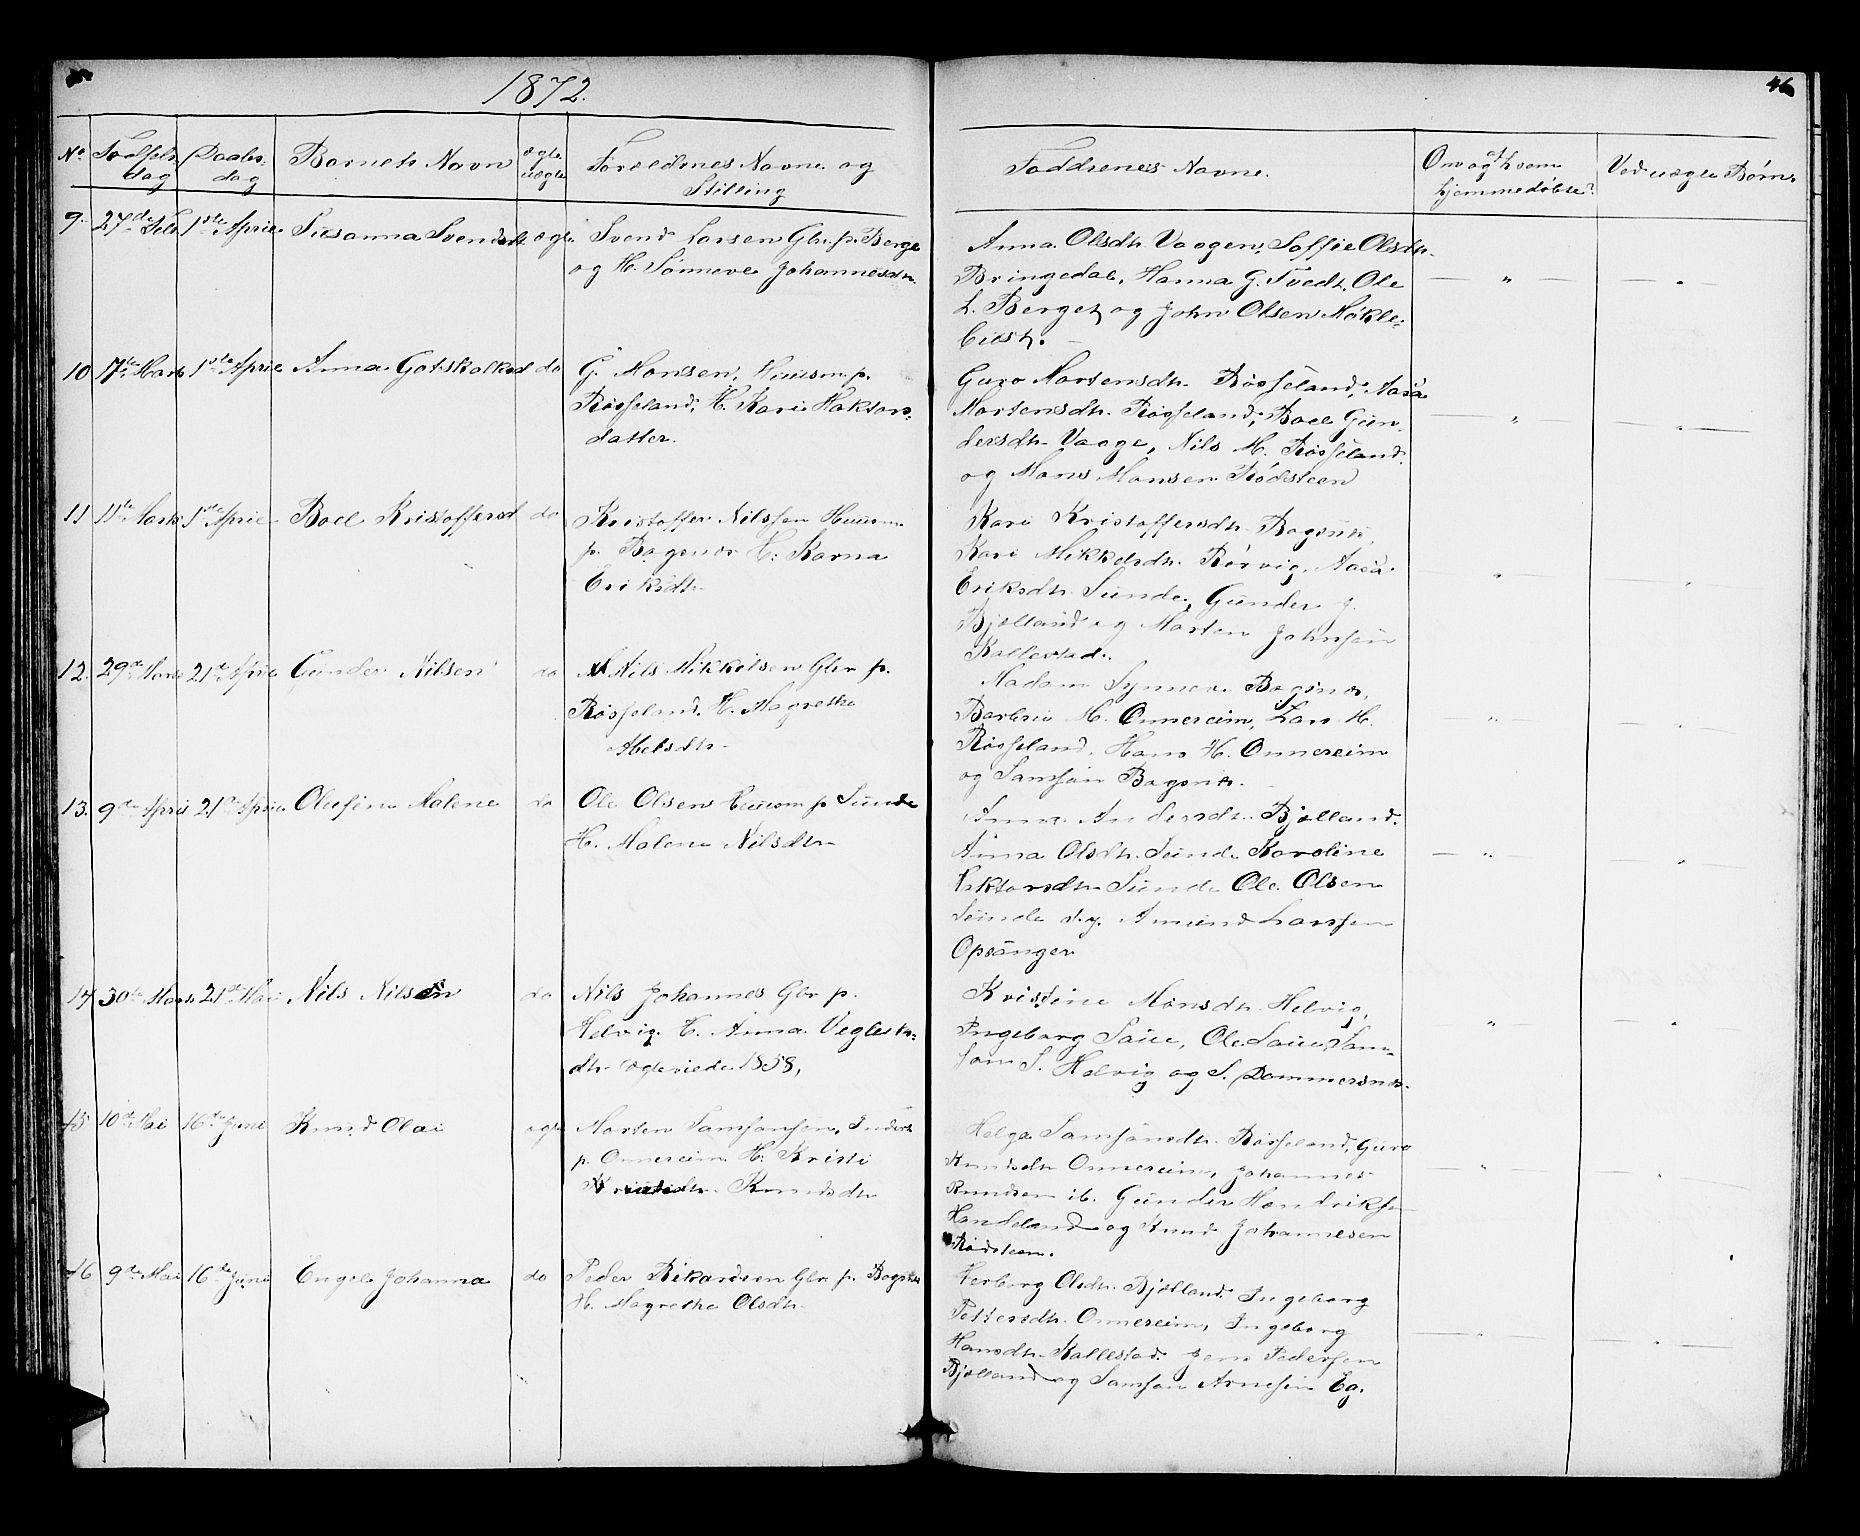 1872.
46
No Fødsels Daabs Barnets Navn ægte Forældrenes Navne og
dag dag uægte Stilling
Faddrenes Navne. Om og af hvem Ved uægte Børn
hjemmedøbte?
9. 27de Feb 1ste April Susanna Svendsdt ægte Svend Larsen Gbr. p. Berge
og H. Sønneve Johannesdtr.
Anna Olsdtr. Vaagen, Soffie Olsdtr.
Bringedal, Hanna G. Tvedt, Ole
L. Berget og John Olsen Mökle-
bust.
10 7de Marts 1ste April Anna Gotskalksd do G. Monsen, Huusm. p.
Røsseland, H. Kari Haktors-
datter.
Guro Mortensdtr. Røsseland, Aasa
Mortensdtr. Røsseland, Boel Gun-
dersdtr. Vaage, Nils M. Røsseland
og Mons Monsen Rödsteen
11 11te Marts 1ste April Boel Kristoffersd do Kristoffer Nilssen Huusm.
p. Bogsnes H. Karna
Eriksdtr.
Kari Kristoffersdtr. Bogsnes,
Kari Mikkelsdtr. Rörvig, Aasa
Eriksdtr. Sunde, Gunder J.
Bjølland og Morten Johnsen
Kallestad.
12. 29de Marts 21de April Gunder Nilsen do Nils Mikkelsen Gbr p.
Røsseland. H. Magrethe
Abelsdtr.
Madam Synneve Bogsnes,
Barbru M. Onnereim, Lars H.
Røsseland, Hans H. Onnereim
og Samson Bogsnes.
13. 9de April 21de April Olufine Malene do Ole Olsen Huusm p Sunde
H. Malene Nilsdtr
Anna Andersdtr. Bjølland.
Anna Olsdtr. Sunde Karoline
Sunde Ole Olsen
Sunde Amund Larssen
Opsanger
14 30te Marts 21de Mai Nils Nilsen do Nils Johannes Gbr p.
Helvig. H. Anna
dtr. ægteviede 1858,
Kristine Monsdtr. Helvig,
Ingeborg Saue, Ole Saue, Sam-
son S. Helvig og S. Dommersnes.
15 10de Mai 16de Juni Knud Olai ægte Morten Samsonsen, Inderst
p. Onnereim H. Kristi
Knudsdtr
Helga Samsonsdtr. Røsseland, Guro
Knudsdtr Onnereim, Johannes
Knudsen ib. Gunder Hendriksen
Handeland og Knud Johannesen
Rødsteen.
16 9de Mai 16de Juni Engel Johanna do Peder Rikardsen Gbr. p. Bogsnes
H. Magrethe Olsdtr.
Herborg Olsdtr. Bjølland Ingeborg
Pettersdtr. Onnereim, Ingeborg
Hansdtr. Kallestad. Jens Pedersen
Bjølland og Samson Arnesen Eg.